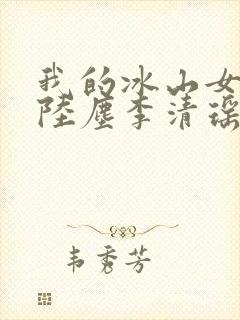 我的冰山女
陸塵李清瑶
韦秀芳